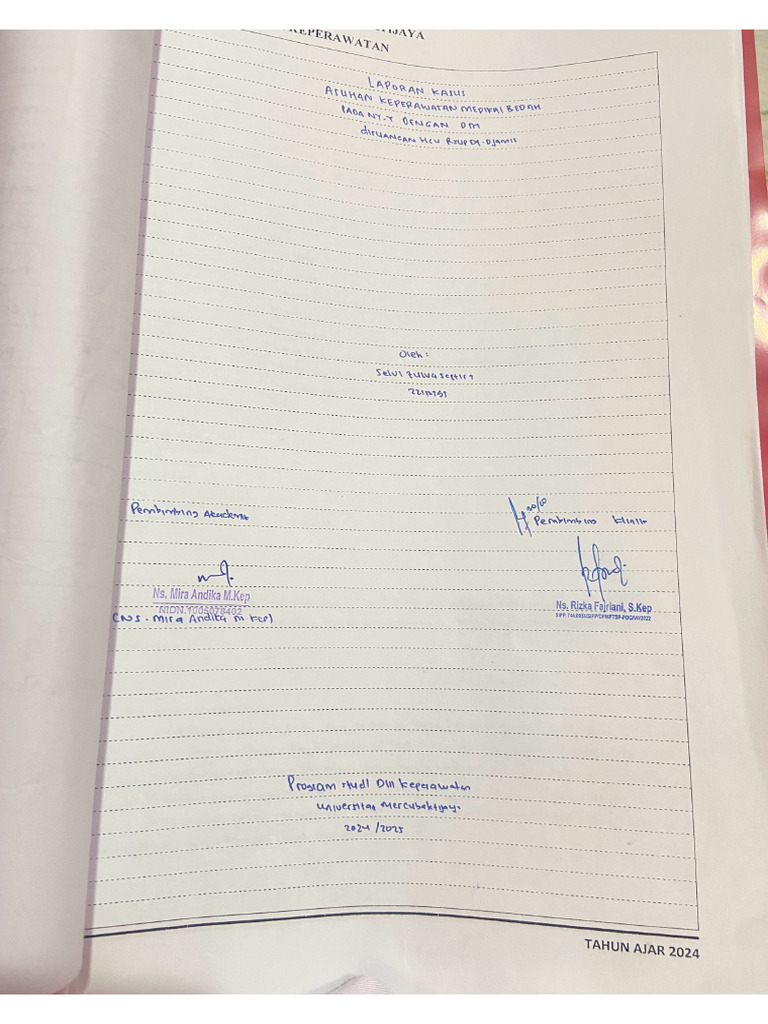 IJAYA
KEPERAWATAN
LAPORAN KASUS
ASUHAN KEPERAWATAN MEDIKAL BEDAH
PADA NY.Y DENGAN DM
diruangan HCU RSUP Dr. Djamil
Oleh :
Selvi Zulva Septira
Pembimbing Akademik
30/10
Pembimbing klinik
Ns. Mira Andika M.Kep
NIDN.1005078402
(NS. Mira Andika M.Kep)
Ns. Rizka Fajriani, S.Kep
Program studi DIII Keperawatan
Universitas Mercubaktijaya
2024/2025
TAHUN AJAR 2024